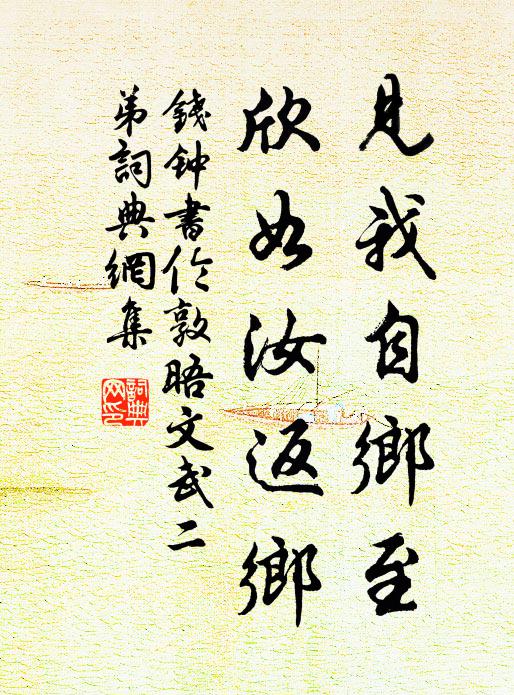 見我自鄉至
欣如汝返鄉
錢钟書伦敦晤文武二
弟詞典網集
詞典网印